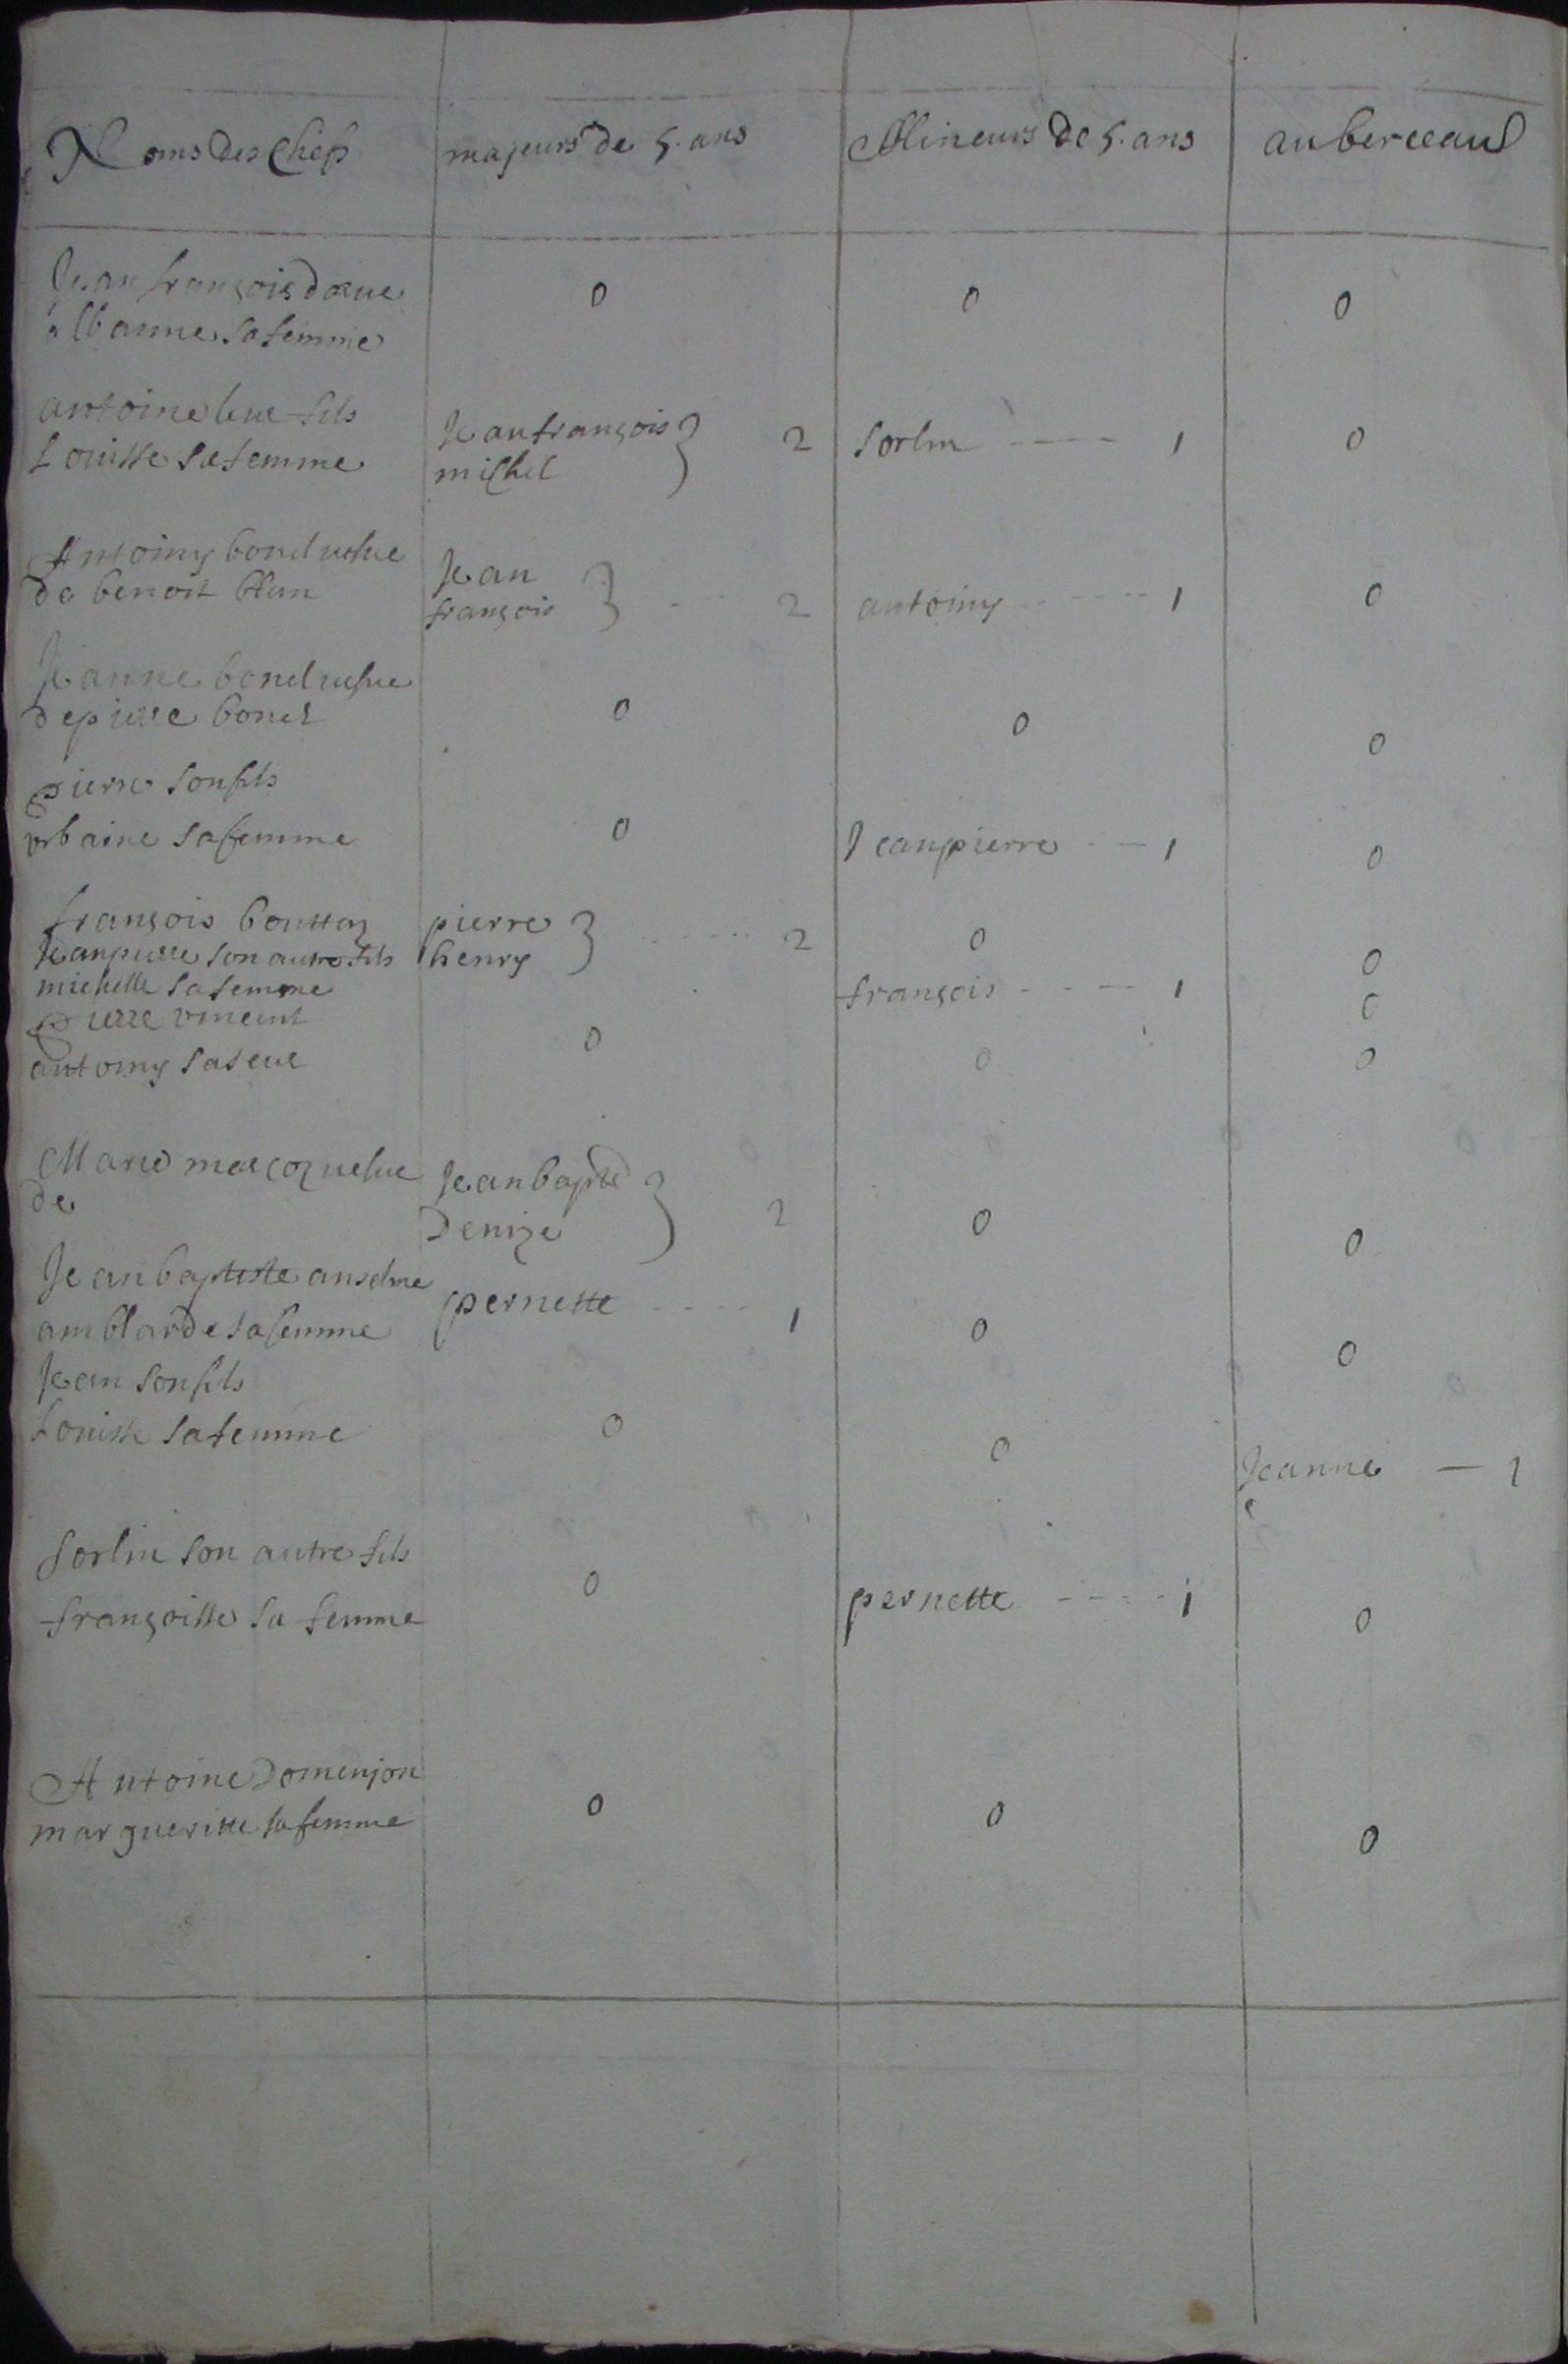 Noms des Chefs majeurs de 5. ans Mineurs de 5. ans au berceaul
Jean françois 0 0 0
albanne sa femme
antoine leur fils Jean françois } 2 sorlin 1 0
Louisse sa femme michel
Antoiny bonel vefue Jean } 2 antoiny 1 0
de benoit blan françois
Jeanne bonel vefue 0 0 0
de pierre bonel
pierre son fils
vrbaine sa femme 0 Jean pierre 1 0
françois bouttaz pierre } 2 0 0
Jean pierre son autre fils henry
michelle sa femme françois 1 0
pierre vincent 0 0 0
antoiny sa seur
Marie vefue Jean bapte } 2 0 0
de Denize
Jean baptiste anselme pernette 1 0 0
amblarde sa femme
Jean son fils
Louisse sa femme 0 0 Jeanne 1
sorlin son autre fils 0 pernette 1 0
françoisse sa femme
Antoine Domenjon 0 0 0
margueritte sa femme